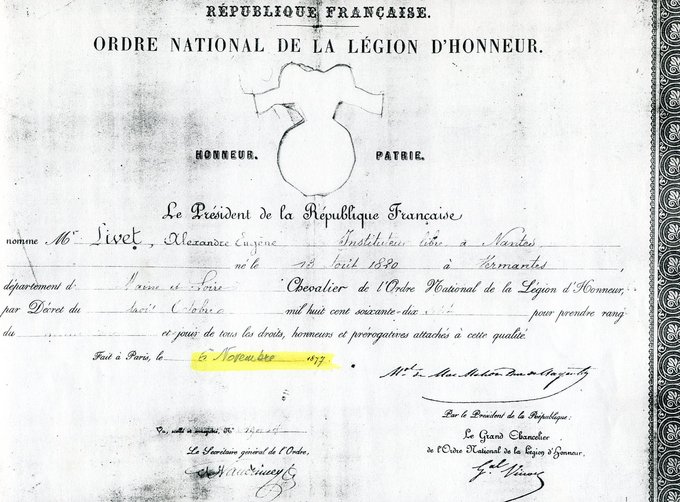 RÉPUBLIQUE FRANÇAISE.
ORDRE NATIONAL DE LA LÉGION D'HONNEUR.
HONNEUR. PATRIE.
Le Président de la République Française
nomme Mr Livet, Alexandre Eugène Instituteur libre à Nantes
né le 18 Août 1820 à Vernantes,
département d Maine et Loire Chevalier de l'Ordre National de la Légion d'Honneur,
par Décret du trois Octobre mil huit cent soixante-dix pour prendre rang
du et jouir de tous les droits, honneurs et prérogatives attachés à cette qualité.
Fait à Paris, le 6 Novembre 1877.
Mal de Mac Mahon Duc de Magenta
Par le Président de la République:
Vu, scellé et enregistré, No
Le Grand Chancelier
Le Secrétaire général de l'Ordre,
de l'Ordre National de la Légion d'Honneur,
Gal Vinoy